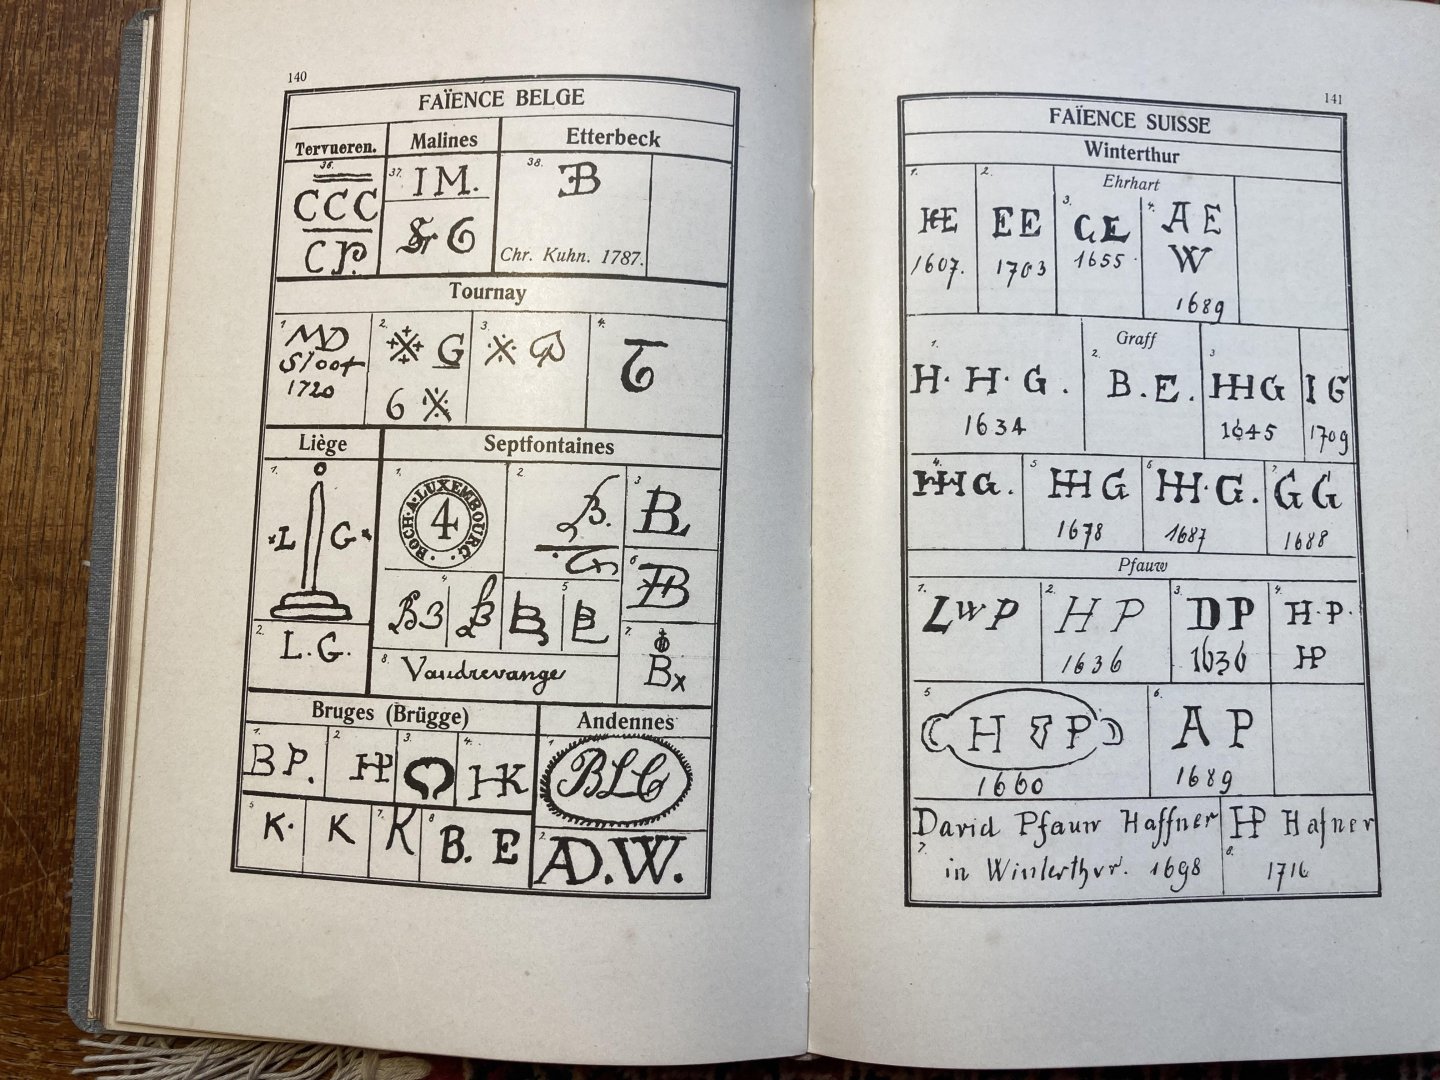 140
FAÏENCE BELGE
Tervueren.
36.
CCC
CP.
Malines
37.
IM.
G
Etterbeck
38.
EB
Chr. Kuhn. 1787.
Tournay
1.
MD
Sloot
1720
2.
G
6
3.
4.
T
Liège
1.
L G
2.
L.G.
Septfontaines
1.
BOCH·A·LUXEMBOURG
4
2.
B.
3
B
4
B3
B
5
B
6
B
7.
Bx
8.
Vaudrevange
Bruges (Brügge)
1.
BP.
2
HP
3.
4.
HK
5
K.
K
7.
K
8
B. E
Andennes
1
BLC
2.
AD.W.
141
FAÏENCE SUISSE
Winterthur
Ehrhart
1.
HE
1607.
2.
EE
1703
3.
CE
1655.
4.
A E
W
1689
Graff
1.
H. H. G.
1634
2.
B. E.
3
HHG
1645
I G
1709
4.
HHG.
5
HH G
1678
6
HH.G.
1687
7.
G G
1688
Pfauw
1.
LWP
2.
H P
1636
3.
DP
1636
4.
H.P.
HP
5
H P
1660
6.
A P
1689
David Pfauw Haffner
7.
in Winterthur. 1698
HP Hafner
8.
1716